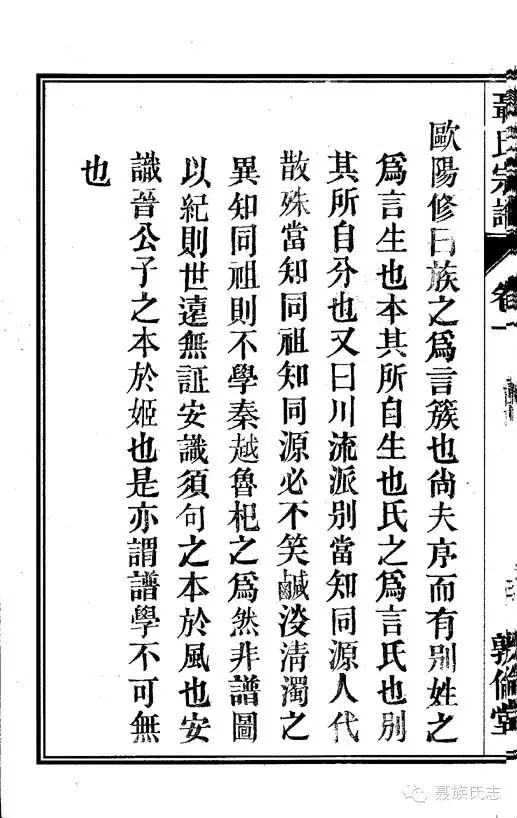 聶氏宗譜
卷一
敦倫堂
歐陽修曰族之爲言簇也尚夫序而有別姓之
爲言生也本其所自生也氏之爲言氏也別
其所自分也又曰川流派別當知同源人代
散殊當知同祖知同源必不笑鹹淡清濁之
異知同祖則不學秦越魯𣏌之爲然非譜圖
以紀則世遠無証安識須句之本於風也安
識晉公子之本於姬也是亦謂譜學不可無
也
聂族氏志